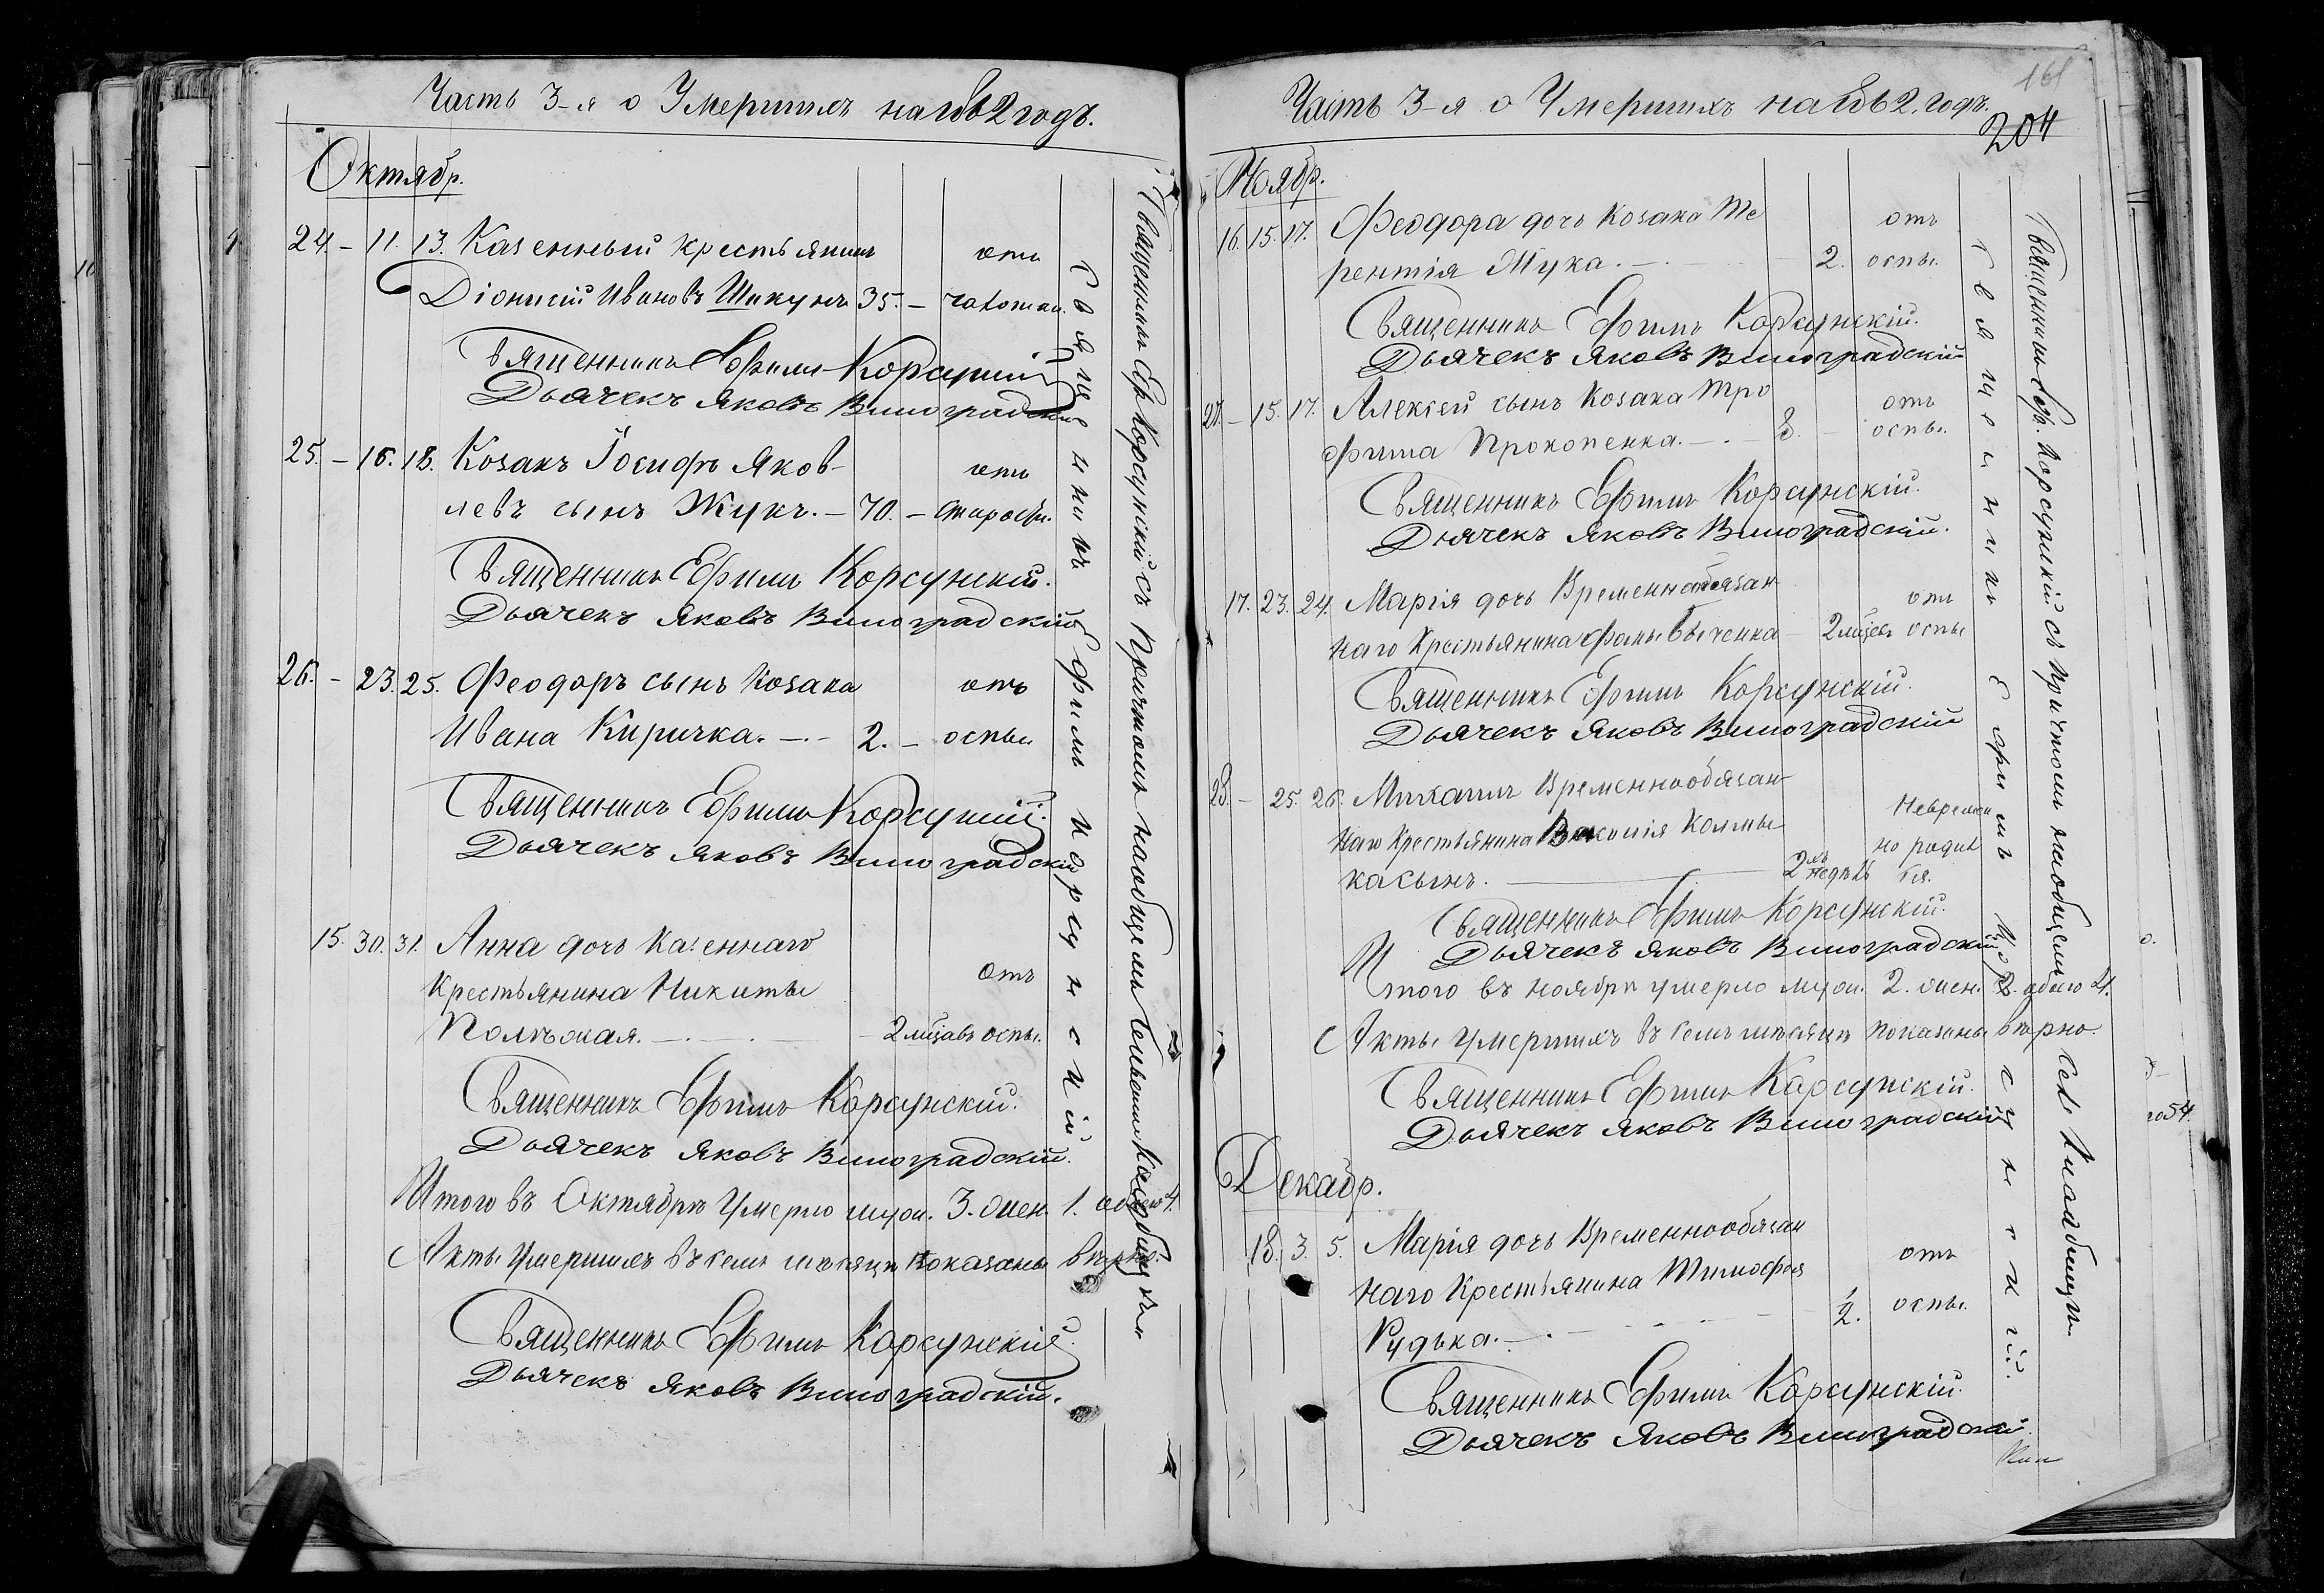 Часть 3-я о Умершихъ на 1862 годъ.
Октябр.
24. – 11. 13. Казенный крестьянинъ отъ
Діонисій Ивановъ Шикунъ 35. –
Священникъ Ефимъ Корсунскій
Дьячекъ Яковъ Виноградскій
25. – 16. 18. Козакъ Іосифъ Яков- отъ
левъ сынъ Жукъ. – 70. – старости.
Священникъ Ефимъ Корсунскій.
Дьячекъ Яковъ Виноградскій
26. – 23. 25. Феодоръ сынъ Козака отъ
Ивана Киричка. – 2. – оспы
Священникъ Ефимъ Корсунскій.
Дьячекъ Яковъ Виноградскій
15. 30. 31. Анна дочь Казеннаго
Крестьянина Никиты отъ
2 мѣсяцъ оспы.
Священникъ Ефимъ Корсунскій.
Дьячекъ Яковъ Виноградскій.
Итого въ Октябрѣ умерло муж. 3. жен. 1. обоего 4.
Акты Умершихъ въ семъ мѣсяцѣ показаны вѣрно.
Священникъ Ефимъ Корсунскій.
Дьячекъ Яковъ Виноградскій.
Священникъ Ефимъ Корсунскій
Священникъ Еф. Корсунскій съ причтомъ
Часть 3-я о Умершихъ на 1862 годъ.
161
204
Ноябр.
16. 15. 17. Феодора дочь Козака Те отъ
рентія Мука. – 2. оспы.
Священникъ Ефимъ Корсунскій.
Дьячекъ Яковъ Виноградскій
27. – 15. 17. Алексѣй сынъ Козака Тро отъ
фима Прокопенка. – оспы.
Священникъ Ефимъ Корсунскій.
Дьячекъ Яковъ Виноградскій.
17. 23. 24. Марія дочь Временнообязан отъ
наго Крестьянина Фомы Быченка – 2 мѣсяц. оспы
Священникъ Ефимъ Корсунскій.
Дьячекъ Яковъ Виноградскій
28. – 25. 26. Михаилъ Временнообязан
наго Крестьянина Колмы Невремен
ка сынъ. 2 недѣль но родил
ся.
Священникъ Ефимъ Корсунскій.
Дьячекъ Яковъ Виноградскій
Итого въ ноябрѣ умерло муж. 2. жен. 2. обоего 4.
Акты Умершихъ въ семъ мѣсяцѣ показаны вѣрно.
Священникъ Ефимъ Корсунскій.
Дьячекъ Яковъ Виноградскій
Декабр.
18. 3. 5. Марія дочь Временнообязан
наго Крестьянина Тимофея отъ
Рудька. – 2. оспы.
Священникъ Ефимъ Корсунскій.
Дьячекъ Яковъ Виноградскій.
Священникъ Ефимъ Корсунскій.
Священникъ Еф. Корсунскій съ причтомъ